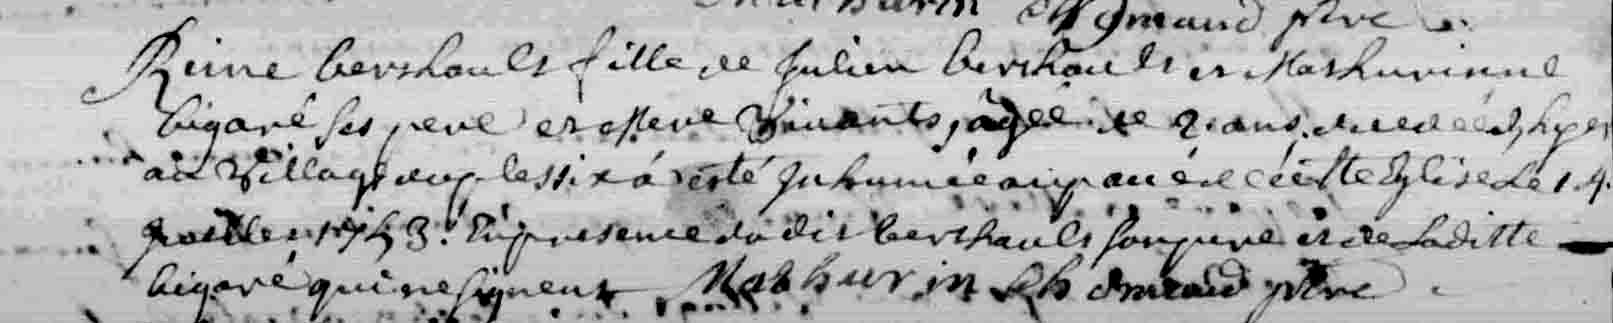 Mathurin pbre
Reine bershault fille de Julien bershault et Mathurinne
bigaré ses pere et Mere Vivants, agée de 2 ans, decedée hyer
au Village du plessix a eté Inhumée au pavé de cette Eglise Le 14
1753. En presence du dit bershault son pere et de Laditte
bigaré qui ne signent Mathurin pbre